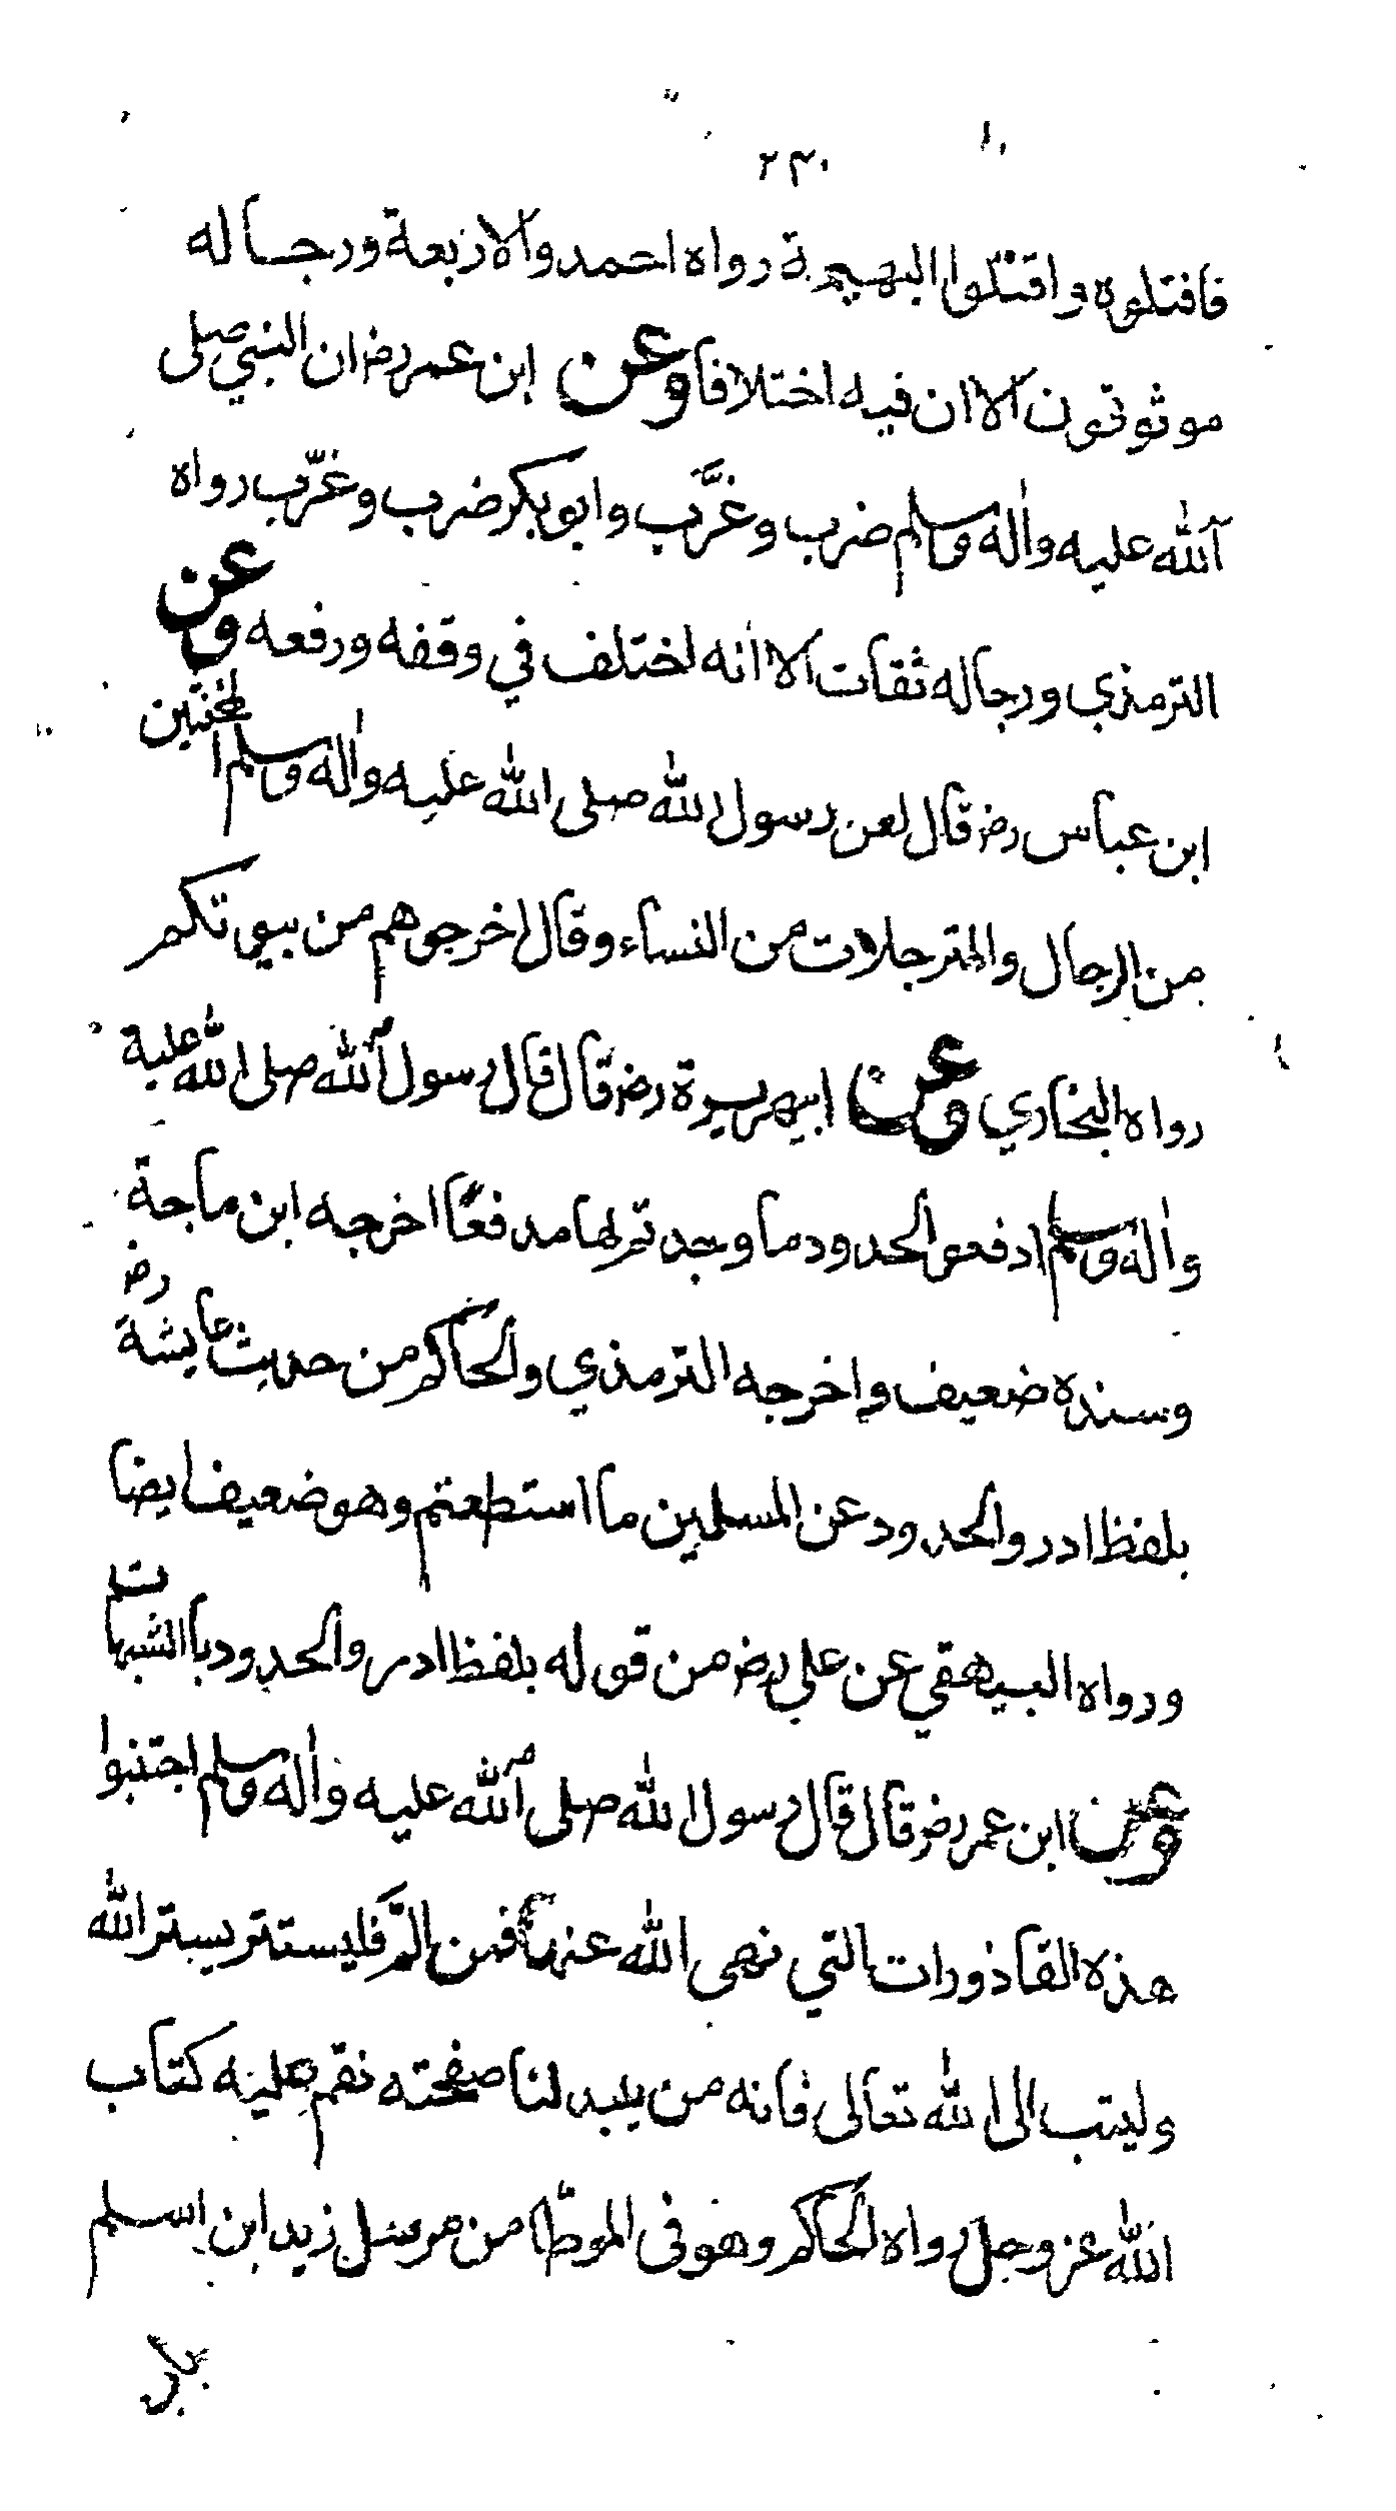 ٢٣٠
فاقتلوه واقتلوا البهيمة رواه احمد والاربعة ورجاله
موثوقون الا ان فيه اختلافا وعن ابن عمر رض ان النبي صلى
الله عليه واله وسلم ضرب وغرَّب وابو بكر ضرب وغرّب رواه
الترمذي ورجاله ثقات الا انه اختلف في وقفه ورفعه وعن
ابن عباس رض قال لعن رسول الله صلى الله عليه واله وسلم المخنثين
من الرجال والمترجلات من النساء وقال اخرجوهم من بيوتكم
رواه البخاري وعن ابيهريرة رض قال قال رسول الله صلى الله علية
واله وسلم ادفعوا الحدود ما وجدتم لها مدفعًا اخرجه ابن ماجة
وسنده ضعيف واخرجه الترمذي والحاكم من حديث عايشة رض
بلفظ ادروا الحدود عن المسلمين ما استطعتم وهو ضعيف ايضا
ورواه البيهقي عن علي رض من قوله بلفظ ادروا الحدود باالشبهات
وعن ابن عمر رض قال قال رسول الله صلى الله عليه واله وسلم اجتنبوا
هذه القاذورات التي نهى الله عنها فمن المَّ فليستتر بستر الله
وليتب الى الله تعالى فانه من يبد لنا صفحته نقم عليه كتاب
الله عز وجل رواه الحاكم وهو في الموطّا من مرسل زيد ابن اسلم